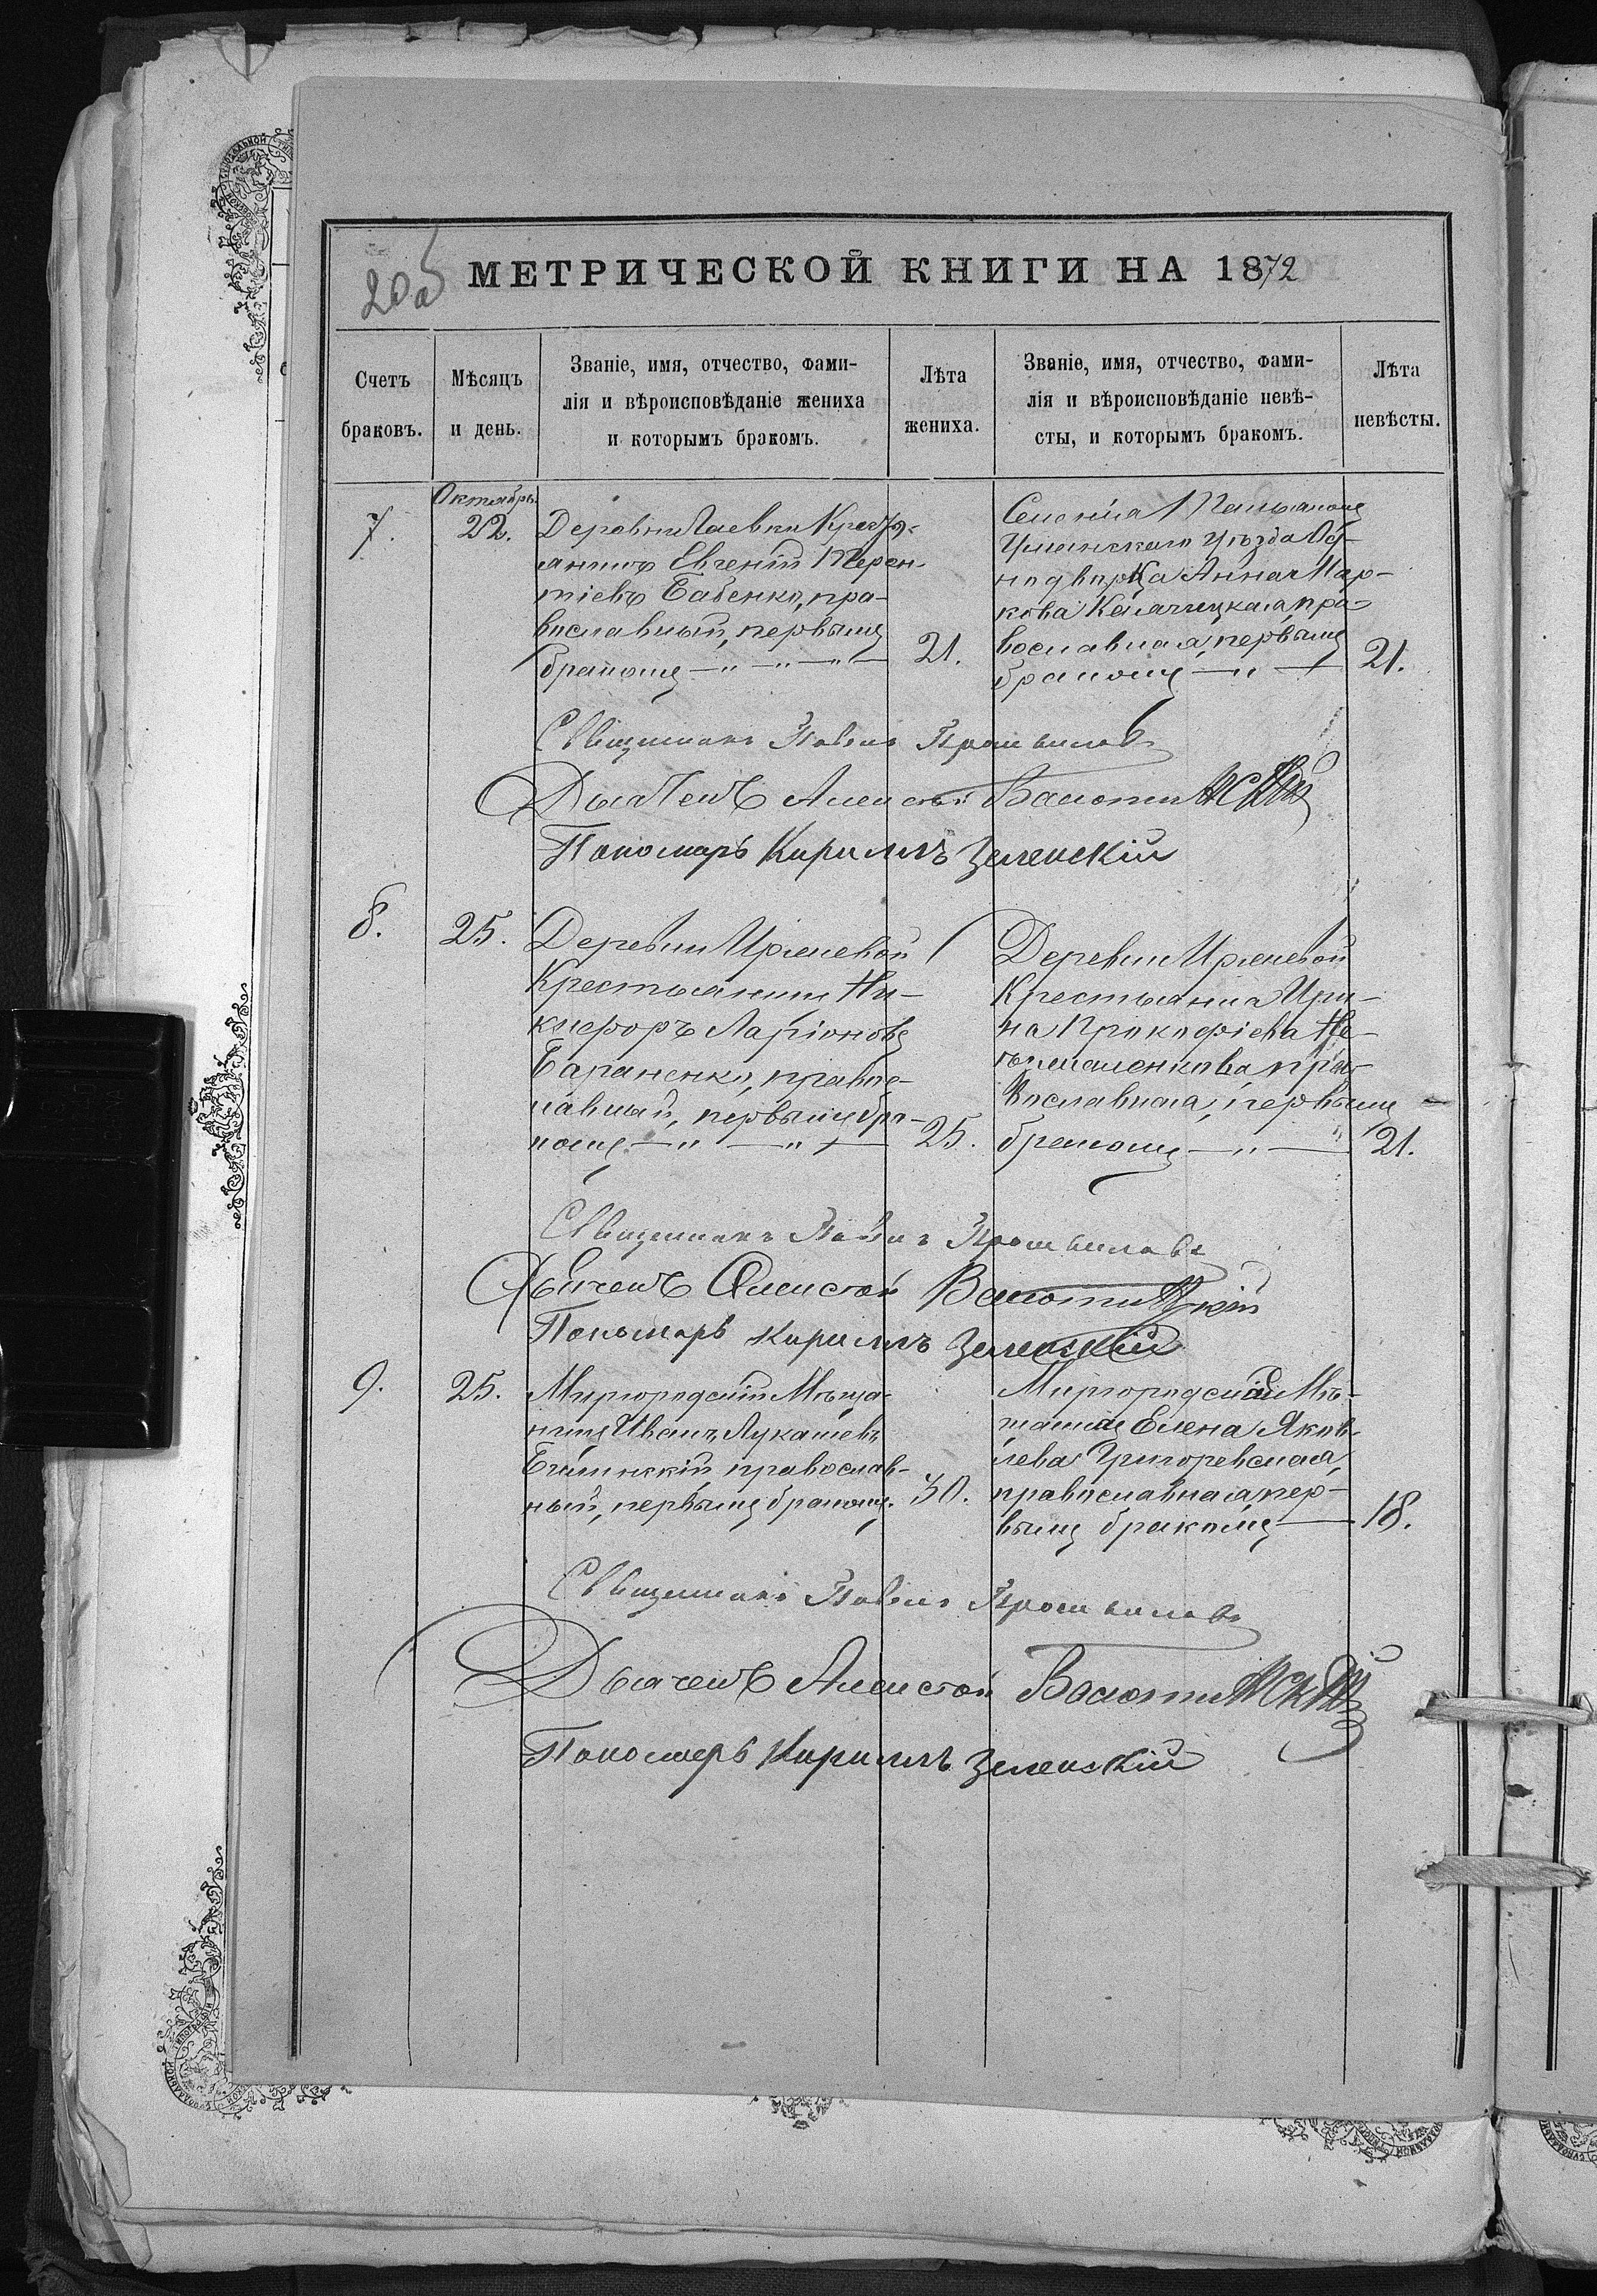 20об
МЕТРИЧЕСКОЙ КНИГИ НА 1872
Счетъ
браковъ.
Мѣсяцъ
и день.
Званіе, имя, отчество, фами-
лія и вѣроисповѣданіе жениха
и которымъ бракомъ.
Лѣта
жениха.
Званіе, имя, отчество, фами-
лія и вѣроисповѣданіе невѣ-
сты, и которымъ бракомъ.
Лѣта
невѣсты.
7.
Октябрь
22.
Деревни Крестья-
нинъ Евгеній Терен-
тіевъ Бабенко, пра-
вославный, первымъ
бракомъ — " — " — " —
21.
Уѣзда Од-
нодворка Анна Мар-
кова пра-
вославная, первымъ
бракомъ — " —
21.
Священникъ Павелъ
Дьячекъ Алексѣй
Пономарь Кириллъ Зеленскій
8.
25.
Деревни
Крестьянинъ Ни-
кифоръ Ларіоновъ
Бараненко, правос-
лавный, первымъ бра-
комъ — " — " —
25.
Деревни
Крестьянка Ири-
на Прокофіева Не-
пра-
вославная, первымъ
бракомъ — " —
21.
Священникъ Павелъ
Дьячекъ Алексѣй
Пономарь Кириллъ Зеленскій
9.
25.
Миргородскій Мѣща-
нинъ Иванъ Лукашевъ
православ-
ный, первымъ бракомъ.
30.
Елена Яков-
лева Григоревская,
православная, пер-
вымъ бракомъ —
18.
Священникъ Павелъ
Дьячекъ Алексѣй
Пономарь Кириллъ Зеленскій